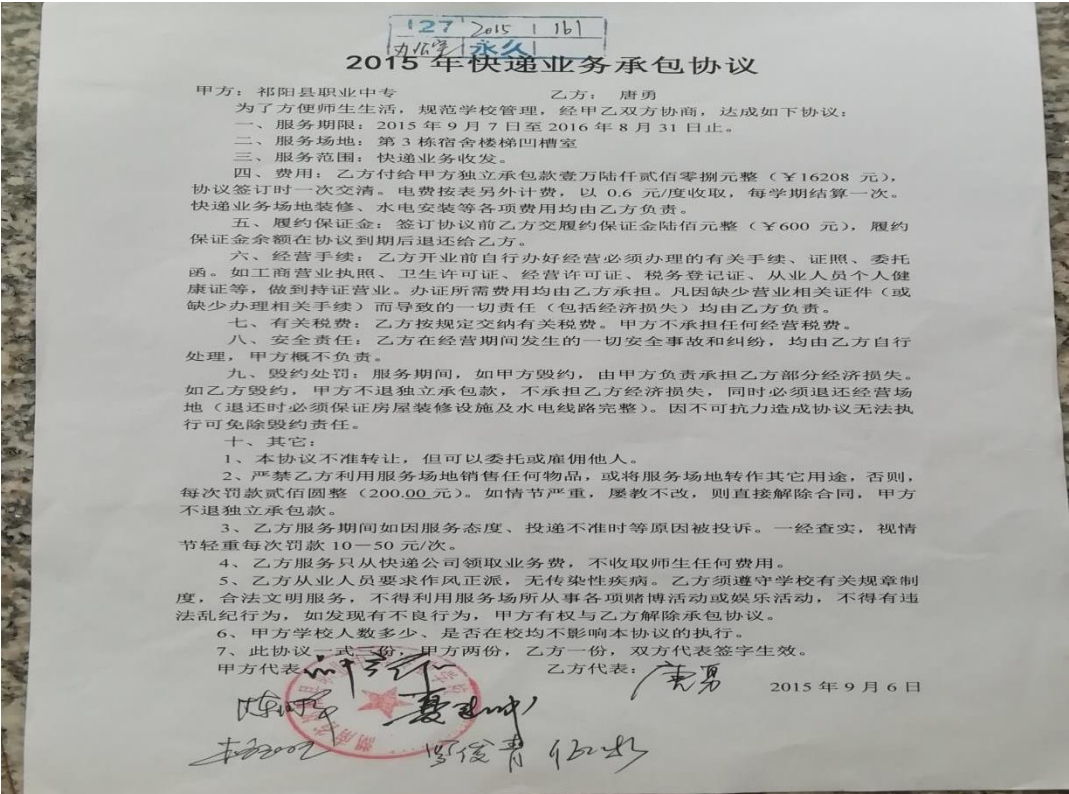 127 2015 161
办公室 永久
2015 年快递业务承包协议
甲方：祁阳县职业中专 乙方： 唐勇
为了方便师生生活，规范学校管理，经甲乙双方协商，达成如下协议：
一、服务期限：2015 年 9 月 7 日至 2016 年 8 月 31 日止。
二、服务场地：第 3 栋宿舍楼梯凹槽室
三、服务范围：快递业务收发。
四、费用：乙方付给甲方独立承包款壹万陆仟贰佰零捌元整（￥16208 元），
协议签订时一次交清。电费按表另外计费，以 0.6 元/度收取，每学期结算一次。
快递业务场地装修、水电安装等各项费用均由乙方负责。
五、履约保证金：签订协议前乙方交履约保证金陆佰元整（￥600 元），履约
保证金余额在协议到期后退还给乙方。
六、经营手续：乙方开业前自行办好经营必须办理的有关手续、证照、委托
函。如工商营业执照、卫生许可证、经营许可证、税务登记证、从业人员个人健
康证等，做到持证营业。办证所需费用均由乙方承担。凡因缺少营业相关证件（或
缺少办理相关手续）而导致的一切责任（包括经济损失）均由乙方负责。
七、有关税费：乙方按规定交纳有关税费。甲方不承担任何经营税费。
八、安全责任：乙方在经营期间发生的一切安全事故和纠纷，均由乙方自行
处理，甲方概不负责。
九、毁约处罚：服务期间，如甲方毁约，由甲方负责承担乙方部分经济损失。
如乙方毁约，甲方不退独立承包款，不承担乙方经济损失，同时必须退还经营场
地（退还时必须保证房屋装修设施及水电线路完整）。因不可抗力造成协议无法执
行可免除毁约责任。
十、其它：
1、本协议不准转让，但可以委托或雇佣他人。
2、严禁乙方利用服务场地销售任何物品，或将服务场地转作其它用途，否则，
每次罚款贰佰圆整（200.00 元）。如情节严重，屡教不改，则直接解除合同，甲方
不退独立承包款。
3、乙方服务期间如因服务态度、投递不准时等原因被投诉。一经查实，视情
节轻重每次罚款 10－50 元/次。
4、乙方服务只从快递公司领取业务费，不收取师生任何费用。
5、乙方从业人员要求作风正派，无传染性疾病。乙方须遵守学校有关规章制
度，合法文明服务，不得利用服务场所从事各项赌博活动或娱乐活动，不得有违
法乱纪行为，如发现有不良行为，甲方有权与乙方解除承包协议。
6、甲方学校人数多少、是否在校均不影响本协议的执行。
7、此协议一式三份，甲方两份，乙方一份，双方代表签字生效。
甲方代表 乙方代表： 唐勇
2015 年 9 月 6 日
罗俊青